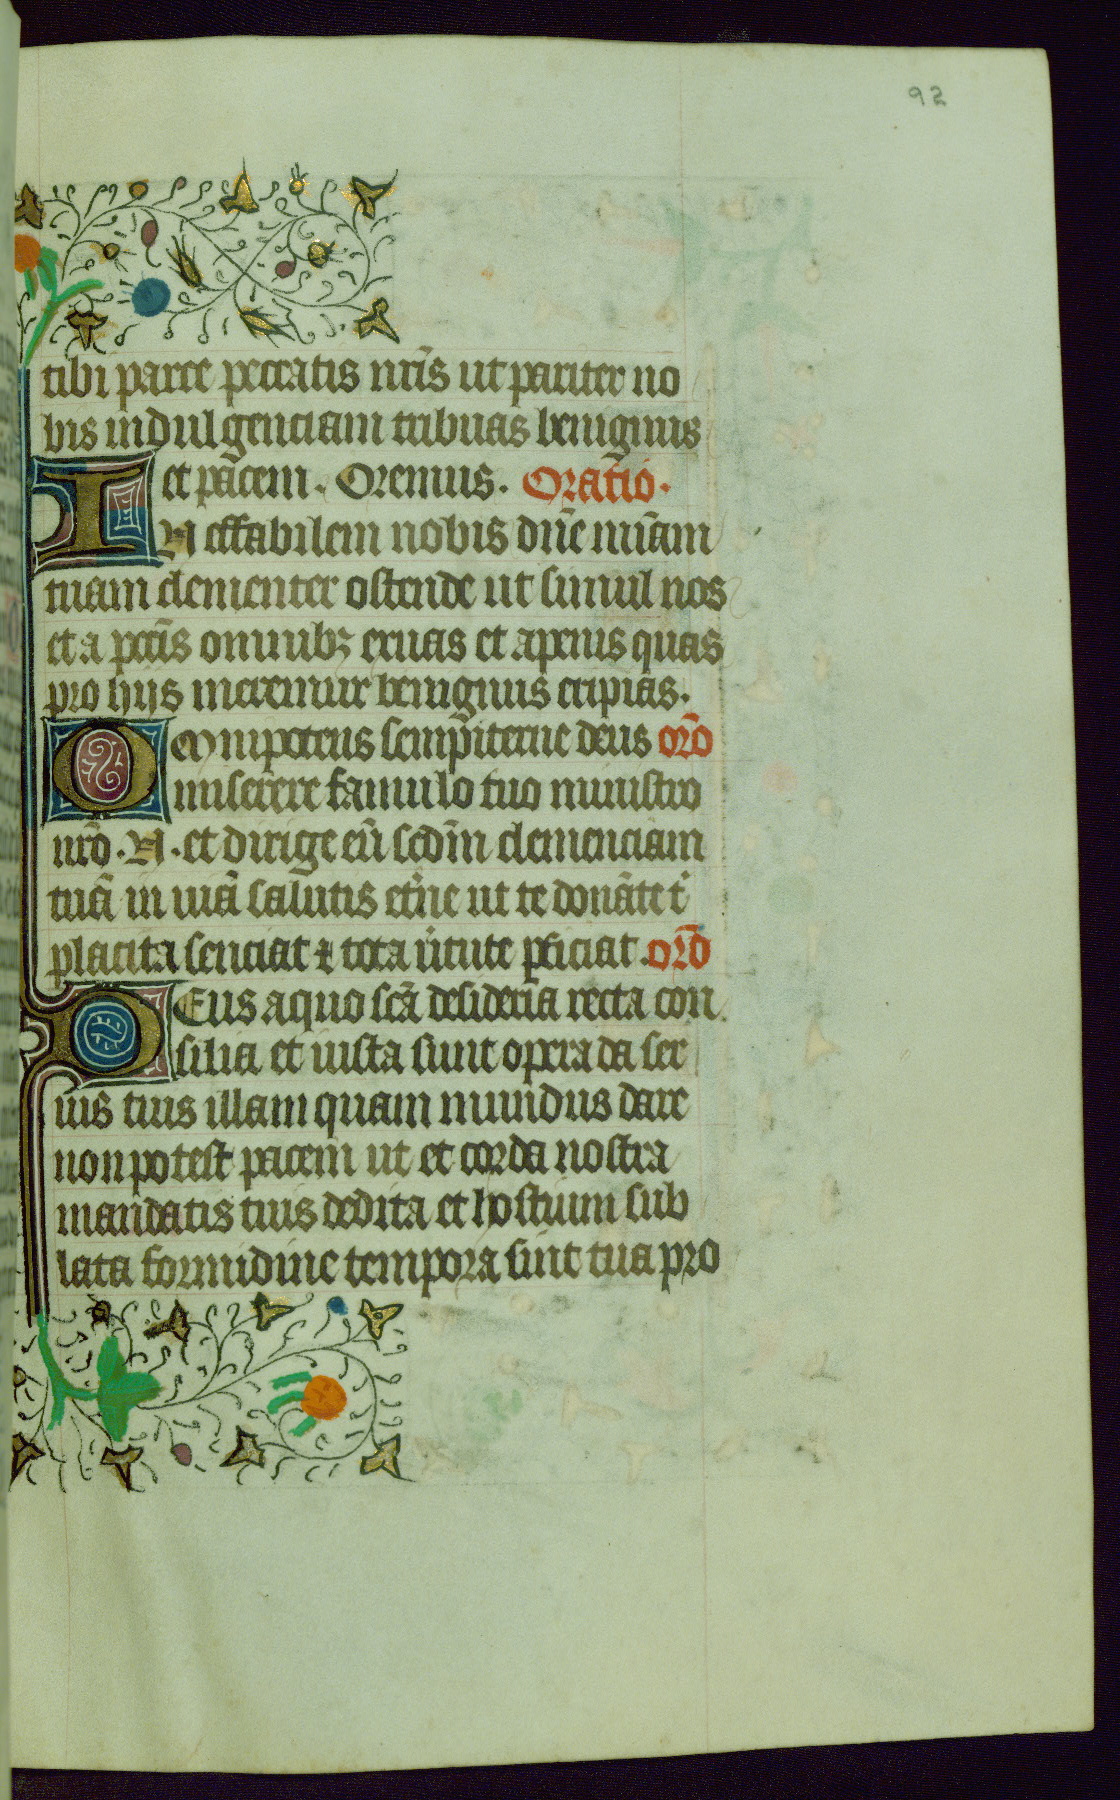 92
tibi parce peccatis nr̄is ut pariter no
bis indulgenciam tribuas benignus
et pacem. Oremus. Oratio.
IN effabilem nobis dn̄e mīam
tuam clementer ostende ut simul nos
et a pctīs omnibꝫ exuas et a penis quas
pro hijs meremur benignus eripias.
Omnipotens sempiterne deus orō
miserere famulo tuo ministro
nrō. N. et dirige eū scdm̄ clemenciam
tuā in uiā salutis et̄ne ut te donāte tͥ
placita senciat ⁊ tota uͥtute ꝑficiat. orō
DEus a quo scā desideria recta con
silia et iusta sunt opera da ser
uis tuis illam quam mundus dare
non potest pacem ut et corda nostra
mandatis tuis dedita et hostium sub
lata formidine tempora sint tua pro